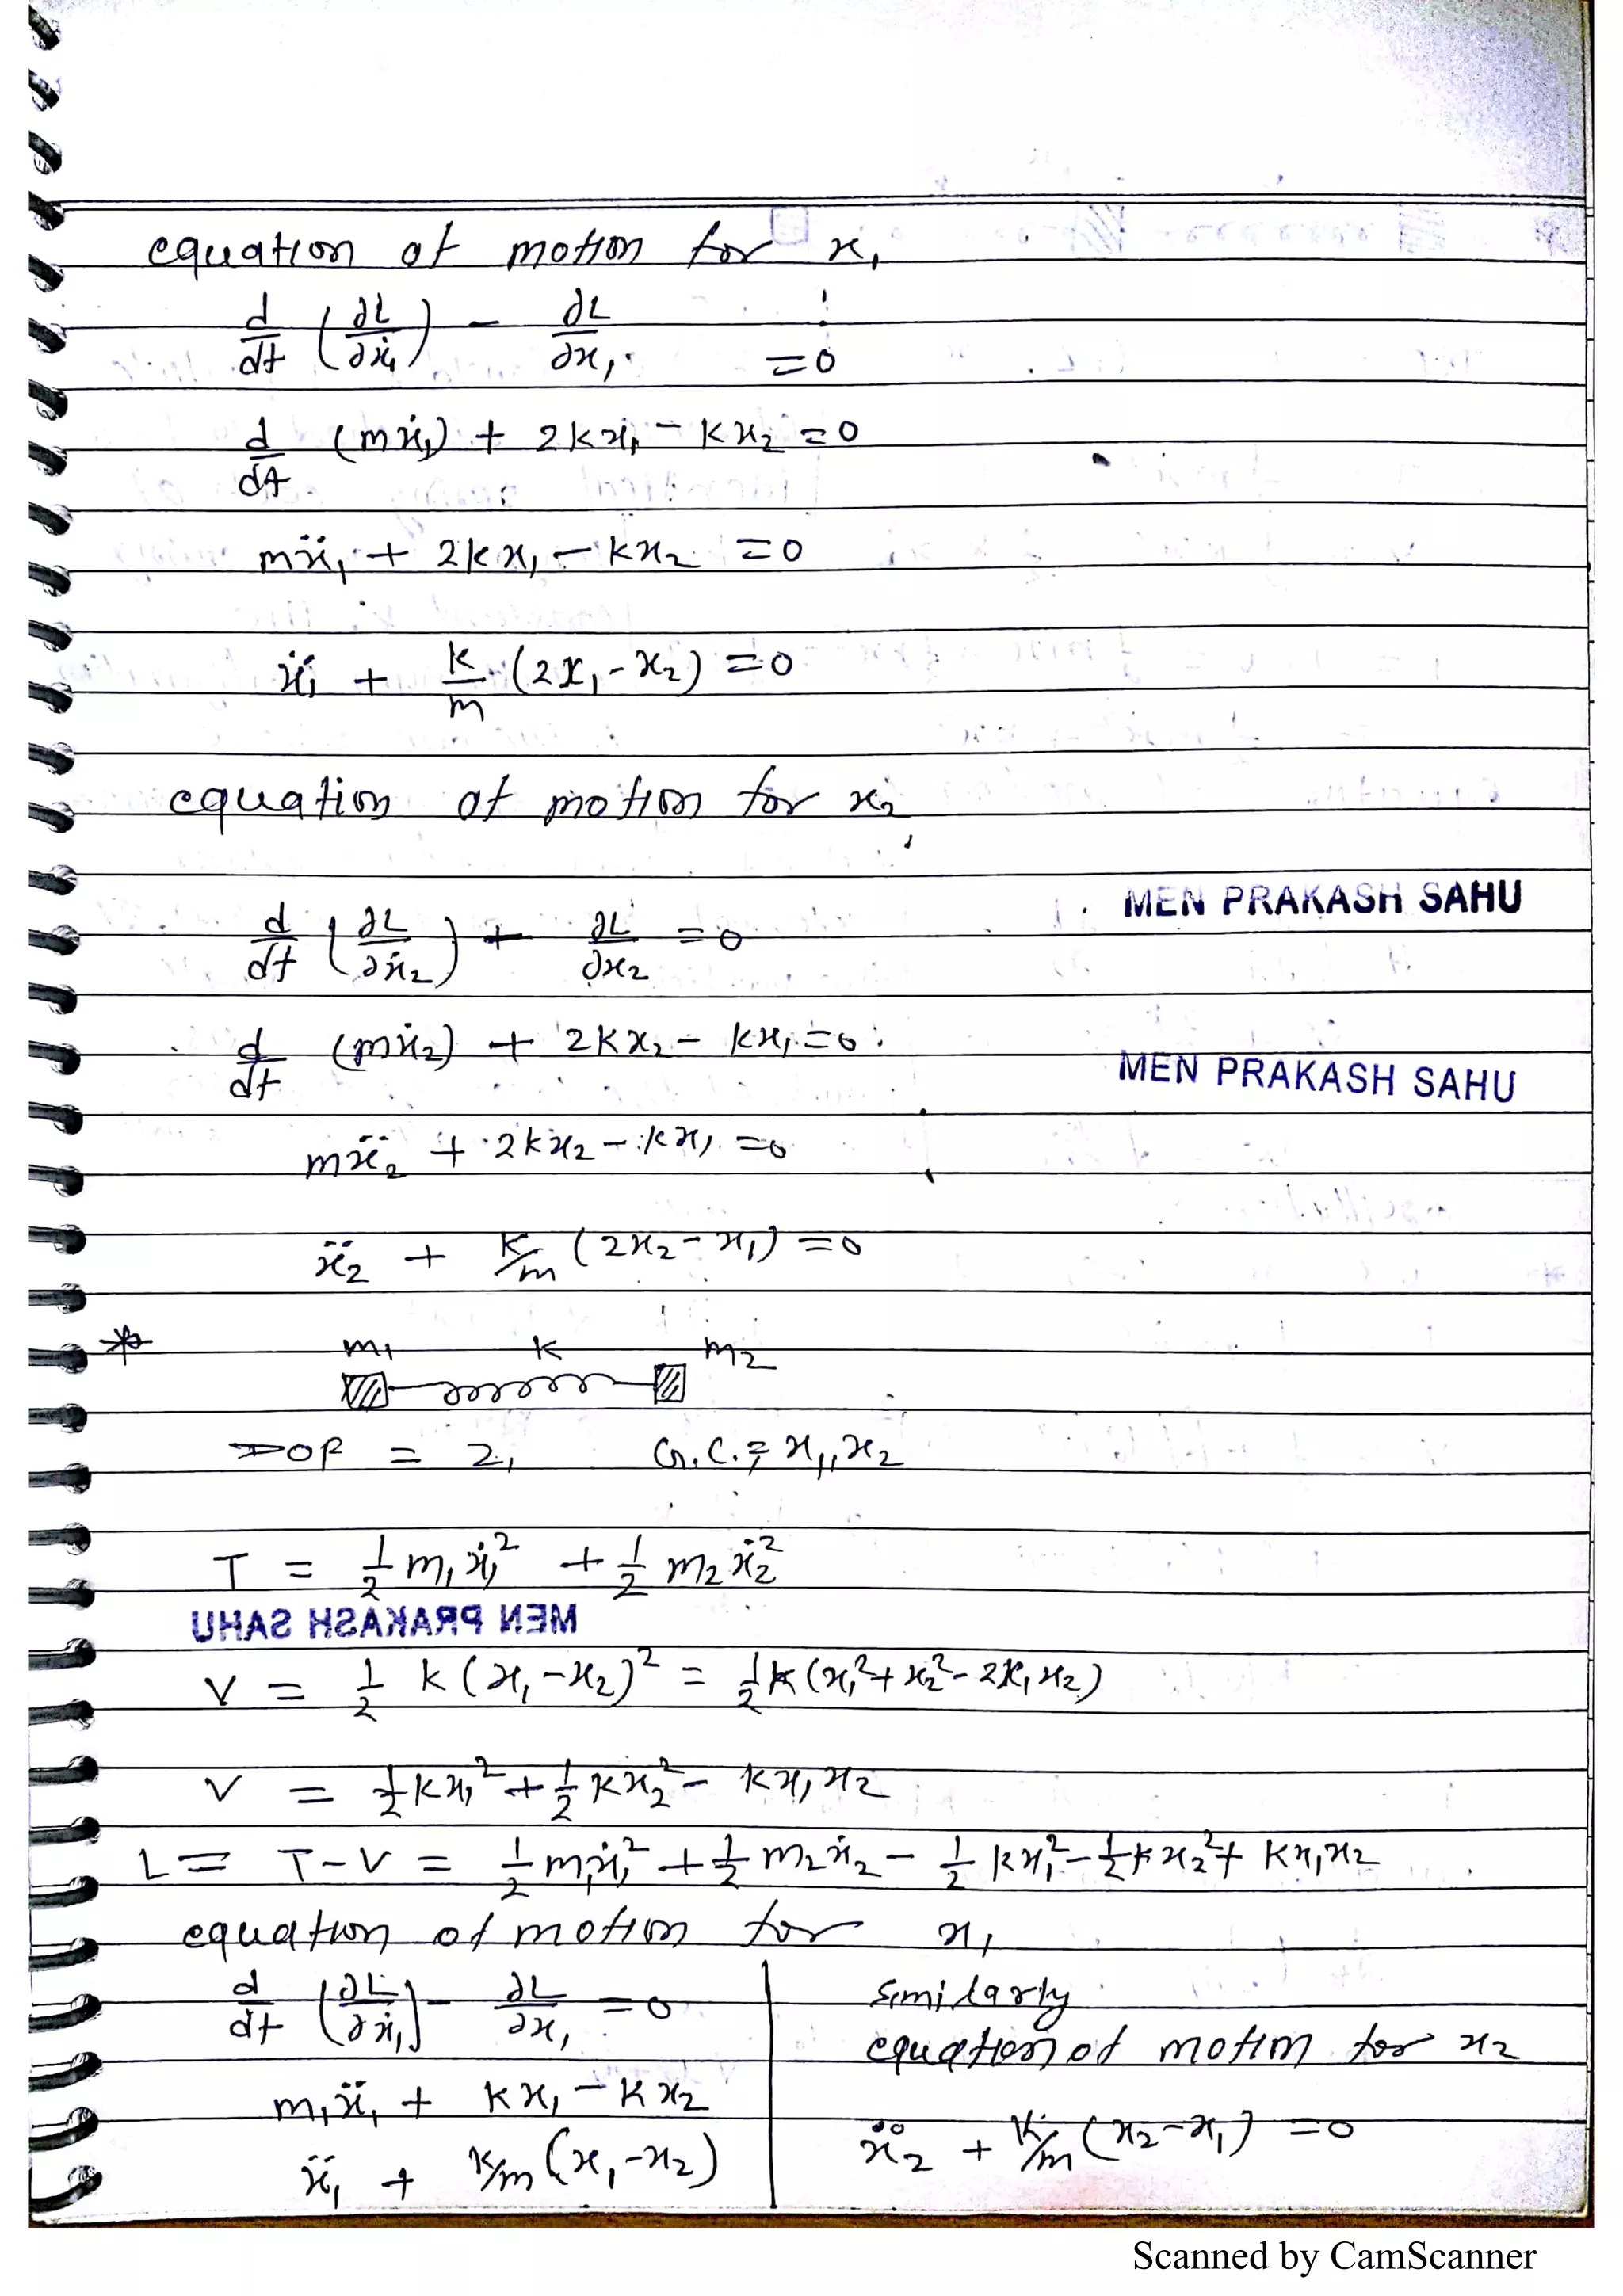 equation of motion for x₁
d/dt (∂L/∂ẋ₁) - ∂L/∂x₁ = 0
d/dt (mẋ₁) + 2kx₁ - kx₂ = 0
mẍ₁ + 2kx₁ - kx₂ = 0
ẍ₁ + k/m (2x₁ - x₂) = 0
equation of motion for x₂
MEN PRAKASH SAHU
d/dt (∂L/∂ẋ₂) + ∂L/∂x₂ = 0
d/dt (mẋ₂) + 2kx₂ - kx₁ = 0
MEN PRAKASH SAHU
mẍ₂ + 2kx₂ - kx₁ = 0
ẍ₂ + k/m (2x₂ - x₁) = 0
* m₁ k m₂
DOF = 2, G.C. = x₁, x₂
T = 1/2 m₁ẋ₁² + 1/2 m₂ẋ₂²
MEN PRAKASH SAHU
V = 1/2 k (x₁ - x₂)² = 1/2 k (x₁² + x₂² - 2x₁x₂)
V = 1/2 kx₁² + 1/2 kx₂² - kx₁x₂
L = T - V = 1/2 m₁ẋ₁² + 1/2 m₂ẋ₂ - 1/2 kx₁² - 1/2 kx₂² + kx₁x₂
equation of motion for x₁
d/dt (∂L/∂ẋ₁) - ∂L/∂x₁ = 0
m₁ẍ₁ + kx₁ - kx₂
ẍ₁ + k/m (x₁ - x₂)
Similarly
equation of motion for x₂
ẍ₂ + k/m (x₂ - x₁) = 0
Scanned by CamScanner